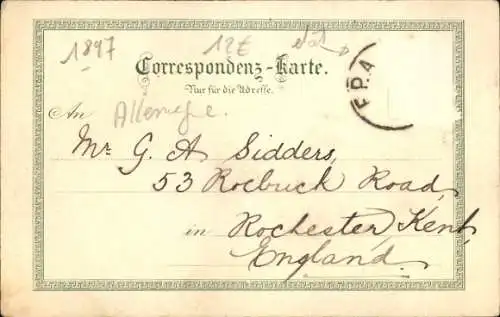 1897 12€ état
Correspondenz-Karte.
Nur für die Adresse.
An
Allemagne.
Mr G. A Sidders,
53 Roebuck Road,
in Rochester, Kent,
England.
F.P.A